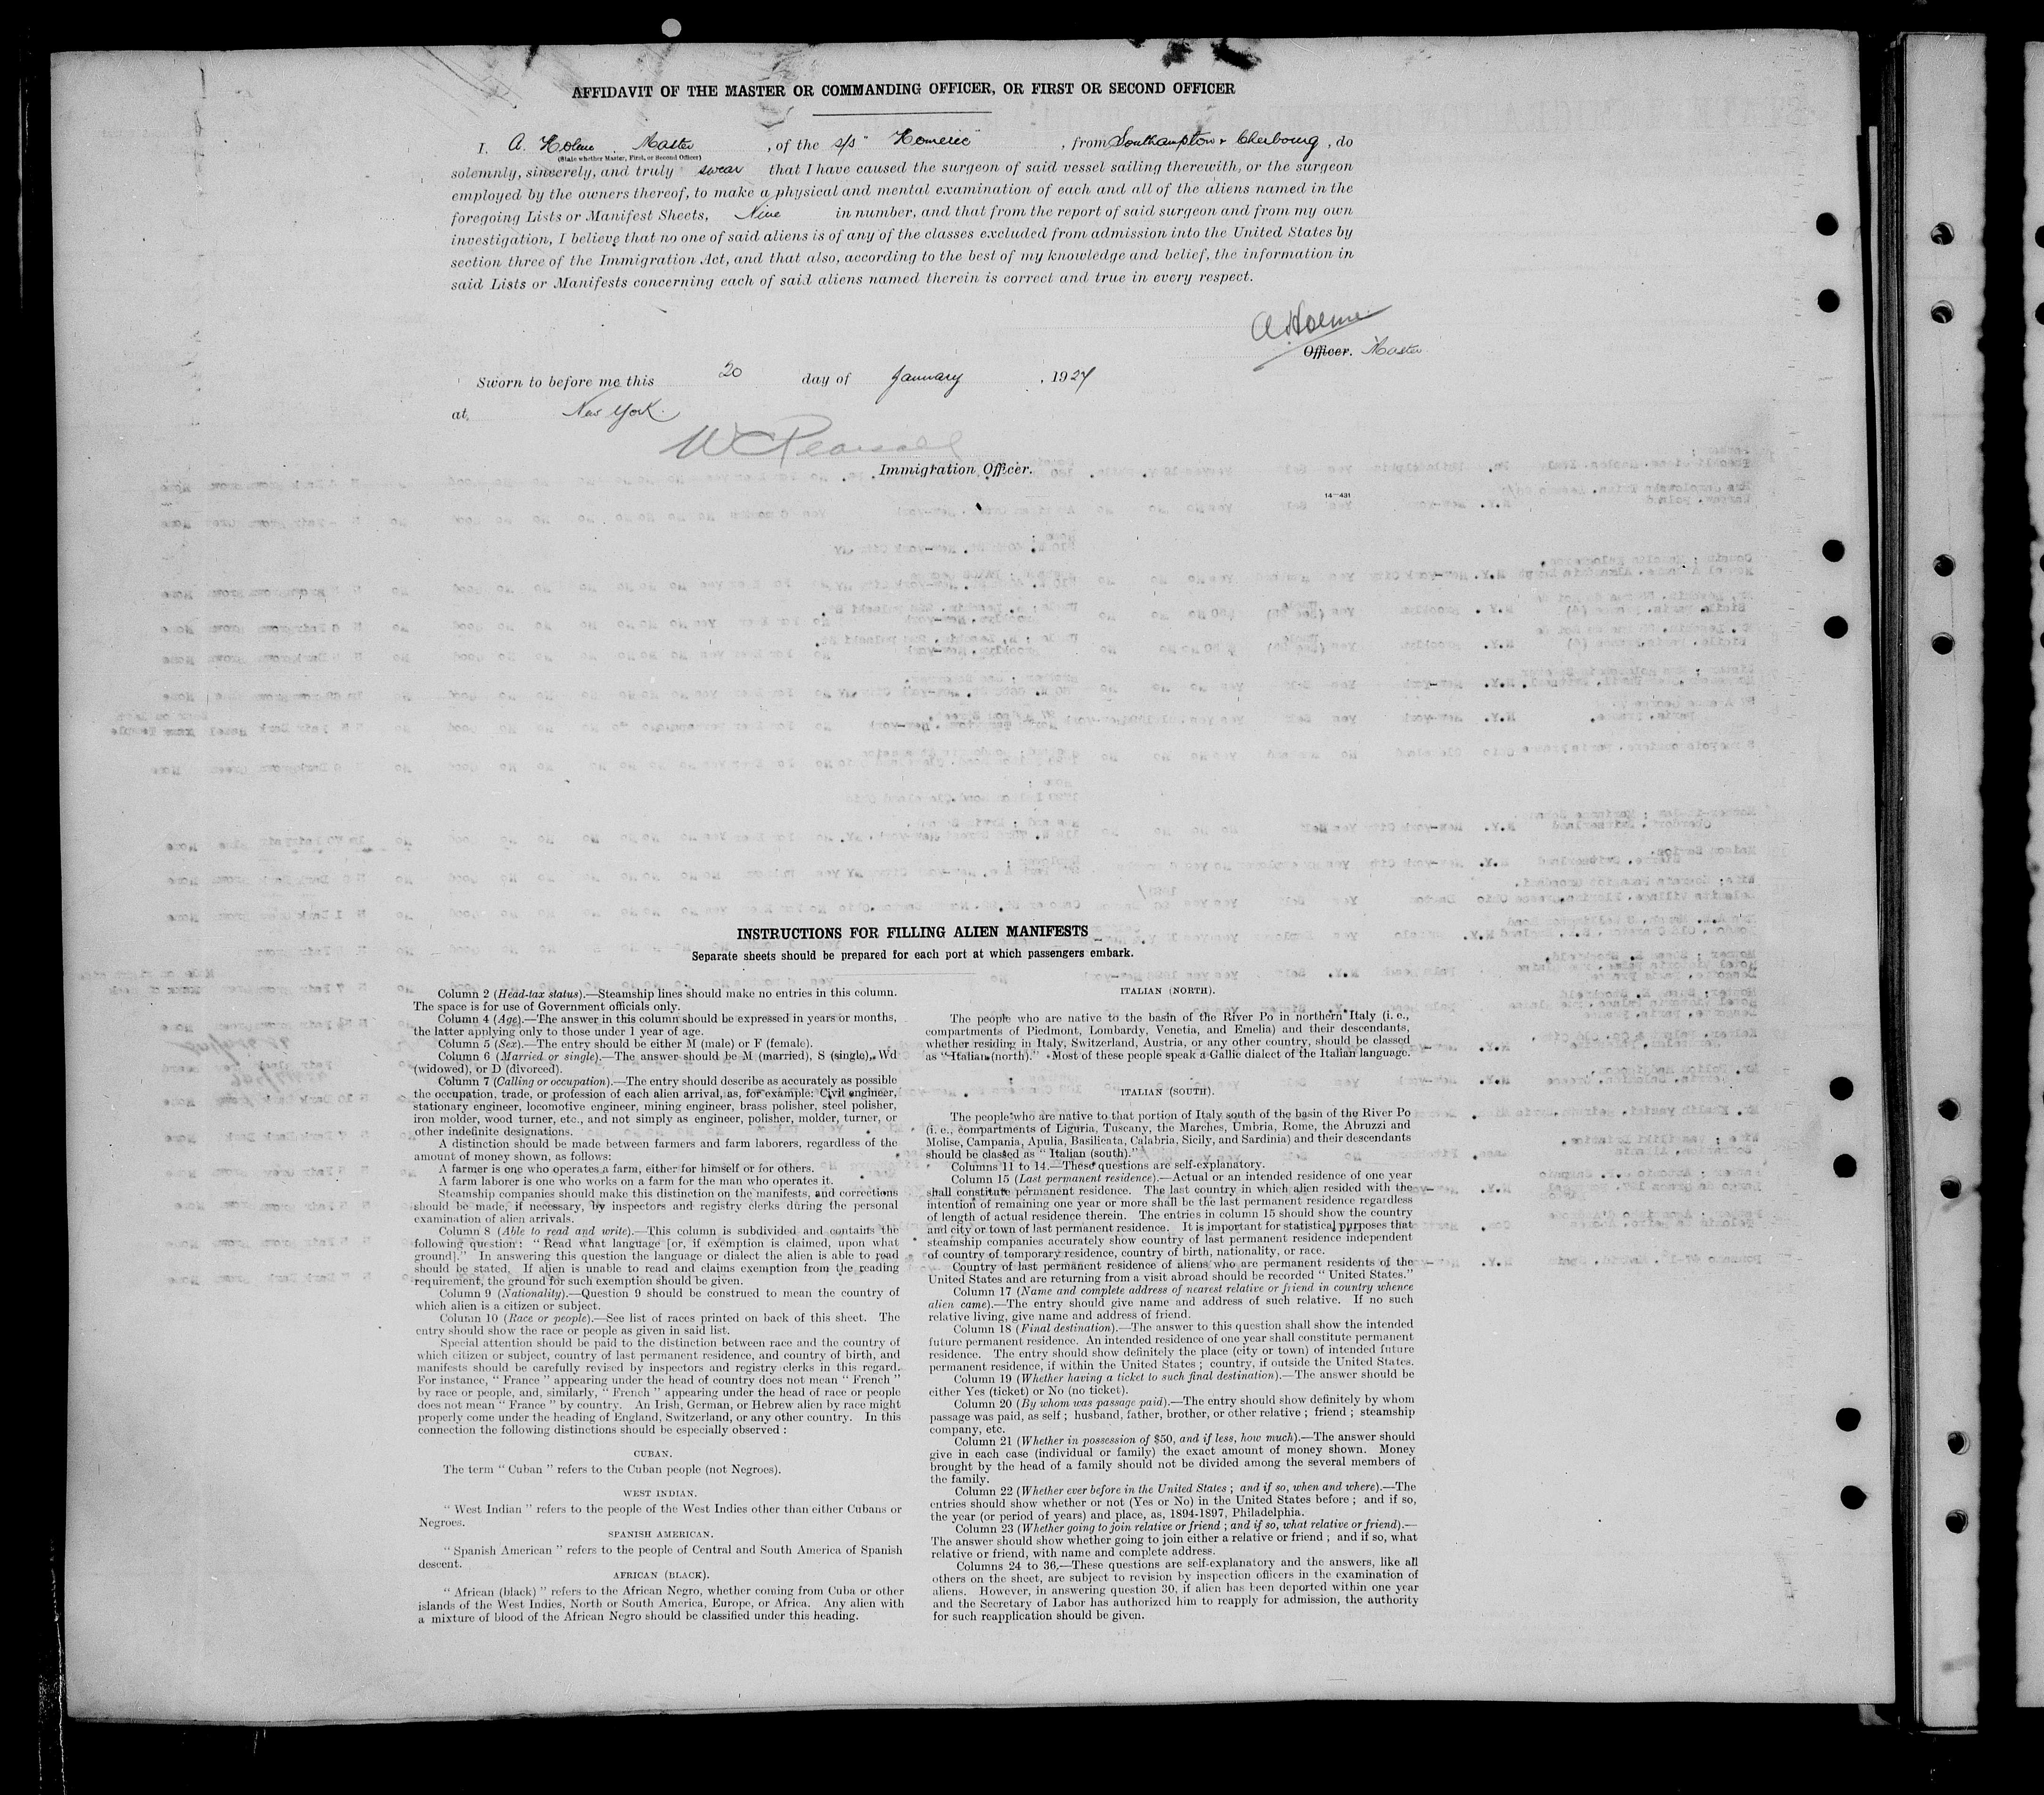 AFFIDAVIT OF THE MASTER OR COMMANDING OFFICER, OR FIRST OR SECOND OFFICER
I, A. Holme . Master , of the s/s "Homeric" , from Southampton & Cherbourg , do
(State whether Master, First, or Second Officer)
solemnly, sincerely, and truly swear that I have caused the surgeon of said vessel sailing therewith, or the surgeon
employed by the owners thereof, to make a physical and mental examination of each and all of the aliens named in the
foregoing Lists or Manifest Sheets, Nine in number, and that from the report of said surgeon and from my own
investigation, I believe that no one of said aliens is of any of the classes excluded from admission into the United States by
section three of the Immigration Act, and that also, according to the best of my knowledge and belief, the information in
said Lists or Manifests concerning each of said aliens named therein is correct and true in every respect.
A. Holme
Officer. Master
Sworn to before me this 20 day of January , 1924
at New York.
Immigration Officer.
14—431
INSTRUCTIONS FOR FILLING ALIEN MANIFESTS
Separate sheets should be prepared for each port at which passengers embark.
Column 2 (Head-tax status).—Steamship lines should make no entries in this column.
The space is for use of Government officials only.
Column 4 (Age).—The answer in this column should be expressed in years or months,
the latter applying only to those under 1 year of age.
Column 5 (Sex).—The entry should be either M (male) or F (female).
Column 6 (Married or single).—The answer should be M (married), S (single), Wd
(widowed), or D (divorced).
Column 7 (Calling or occupation).—The entry should describe as accurately as possible
the occupation, trade, or profession of each alien arrival, as, for example: Civil engineer,
stationary engineer, locomotive engineer, mining engineer, brass polisher, steel polisher,
iron molder, wood turner, etc., and not simply as engineer, polisher, molder, turner, or
other indefinite designations.
A distinction should be made between farmers and farm laborers, regardless of the
amount of money shown, as follows:
A farmer is one who operates a farm, either for himself or for others.
A farm laborer is one who works on a farm for the man who operates it.
Steamship companies should make this distinction on the manifests, and corrections
should be made, if necessary, by inspectors and registry clerks during the personal
examination of alien arrivals.
Column 8 (Able to read and write).—This column is subdivided and contains the
following question: " Read what language [or, if exemption is claimed, upon what
ground]." In answering this question the language or dialect the alien is able to read
should be stated. If alien is unable to read and claims exemption from the reading
requirement, the ground for such exemption should be given.
Column 9 (Nationality).—Question 9 should be construed to mean the country of
which alien is a citizen or subject.
Column 10 (Race or people).—See list of races printed on back of this sheet. The
entry should show the race or people as given in said list.
Special attention should be paid to the distinction between race and the country of
which citizen or subject, country of last permanent residence, and country of birth, and
manifests should be carefully revised by inspectors and registry clerks in this regard.
For instance, " France " appearing under the head of country does not mean " French "
by race or people, and, similarly, " French " appearing under the head of race or people
does not mean " France " by country. An Irish, German, or Hebrew alien by race might
properly come under the heading of England, Switzerland, or any other country. In this
connection the following distinctions should be especially observed :
CUBAN.
The term " Cuban " refers to the Cuban people (not Negroes).
WEST INDIAN.
" West Indian " refers to the people of the West Indies other than either Cubans or
Negroes.
SPANISH AMERICAN.
" Spanish American " refers to the people of Central and South America of Spanish
descent.
AFRICAN (BLACK).
" African (black) " refers to the African Negro, whether coming from Cuba or other
islands of the West Indies, North or South America, Europe, or Africa. Any alien with
a mixture of blood of the African Negro should be classified under this heading.
ITALIAN (NORTH).
The people who are native to the basin of the River Po in northern Italy (i. e.,
compartments of Piedmont, Lombardy, Venetia, and Emelia) and their descendants,
whether residing in Italy, Switzerland, Austria, or any other country, should be classed
as " Italian (north)." Most of these people speak a Gallic dialect of the Italian language.
ITALIAN (SOUTH).
The people who are native to that portion of Italy south of the basin of the River Po
(i. e., compartments of Liguria, Tuscany, the Marches, Umbria, Rome, the Abruzzi and
Molise, Campania, Apulia, Basilicata, Calabria, Sicily, and Sardinia) and their descendants
should be classed as " Italian (south)."
Columns 11 to 14.—These questions are self-explanatory.
Column 15 (Last permanent residence).—Actual or an intended residence of one year
shall constitute permanent residence. The last country in which alien resided with the
intention of remaining one year or more shall be the last permanent residence regardless
of length of actual residence therein. The entries in column 15 should show the country
and city or town of last permanent residence. It is important for statistical purposes that
steamship companies accurately show country of last permanent residence independent
of country of temporary residence, country of birth, nationality, or race.
Country of last permanent residence of aliens who are permanent residents of the
United States and are returning from a visit abroad should be recorded " United States."
Column 17 (Name and complete address of nearest relative or friend in country whence
alien came).—The entry should give name and address of such relative. If no such
relative living, give name and address of friend.
Column 18 (Final destination).—The answer to this question shall show the intended
future permanent residence. An intended residence of one year shall constitute permanent
residence. The entry should show definitely the place (city or town) of intended future
permanent residence, if within the United States ; country, if outside the United States.
Column 19 (Whether having a ticket to such final destination).—The answer should be
either Yes (ticket) or No (no ticket).
Column 20 (By whom was passage paid).—The entry should show definitely by whom
passage was paid, as self ; husband, father, brother, or other relative ; friend ; steamship
company, etc.
Column 21 (Whether in possession of $50, and if less, how much).—The answer should
give in each case (individual or family) the exact amount of money shown. Money
brought by the head of a family should not be divided among the several members of
the family.
Column 22 (Whether ever before in the United States ; and if so, when and where).—The
entries should show whether or not (Yes or No) in the United States before ; and if so,
the year (or period of years) and place, as, 1894-1897, Philadelphia.
Column 23 (Whether going to join relative or friend ; and if so, what relative or friend).—
The answer should show whether going to join either a relative or friend ; and if so, what
relative or friend, with name and complete address.
Columns 24 to 36.—These questions are self-explanatory and the answers, like all
others on the sheet, are subject to revision by inspection officers in the examination of
aliens. However, in answering question 30, if alien has been deported within one year
and the Secretary of Labor has authorized him to reapply for admission, the authority
for such reapplication should be given.